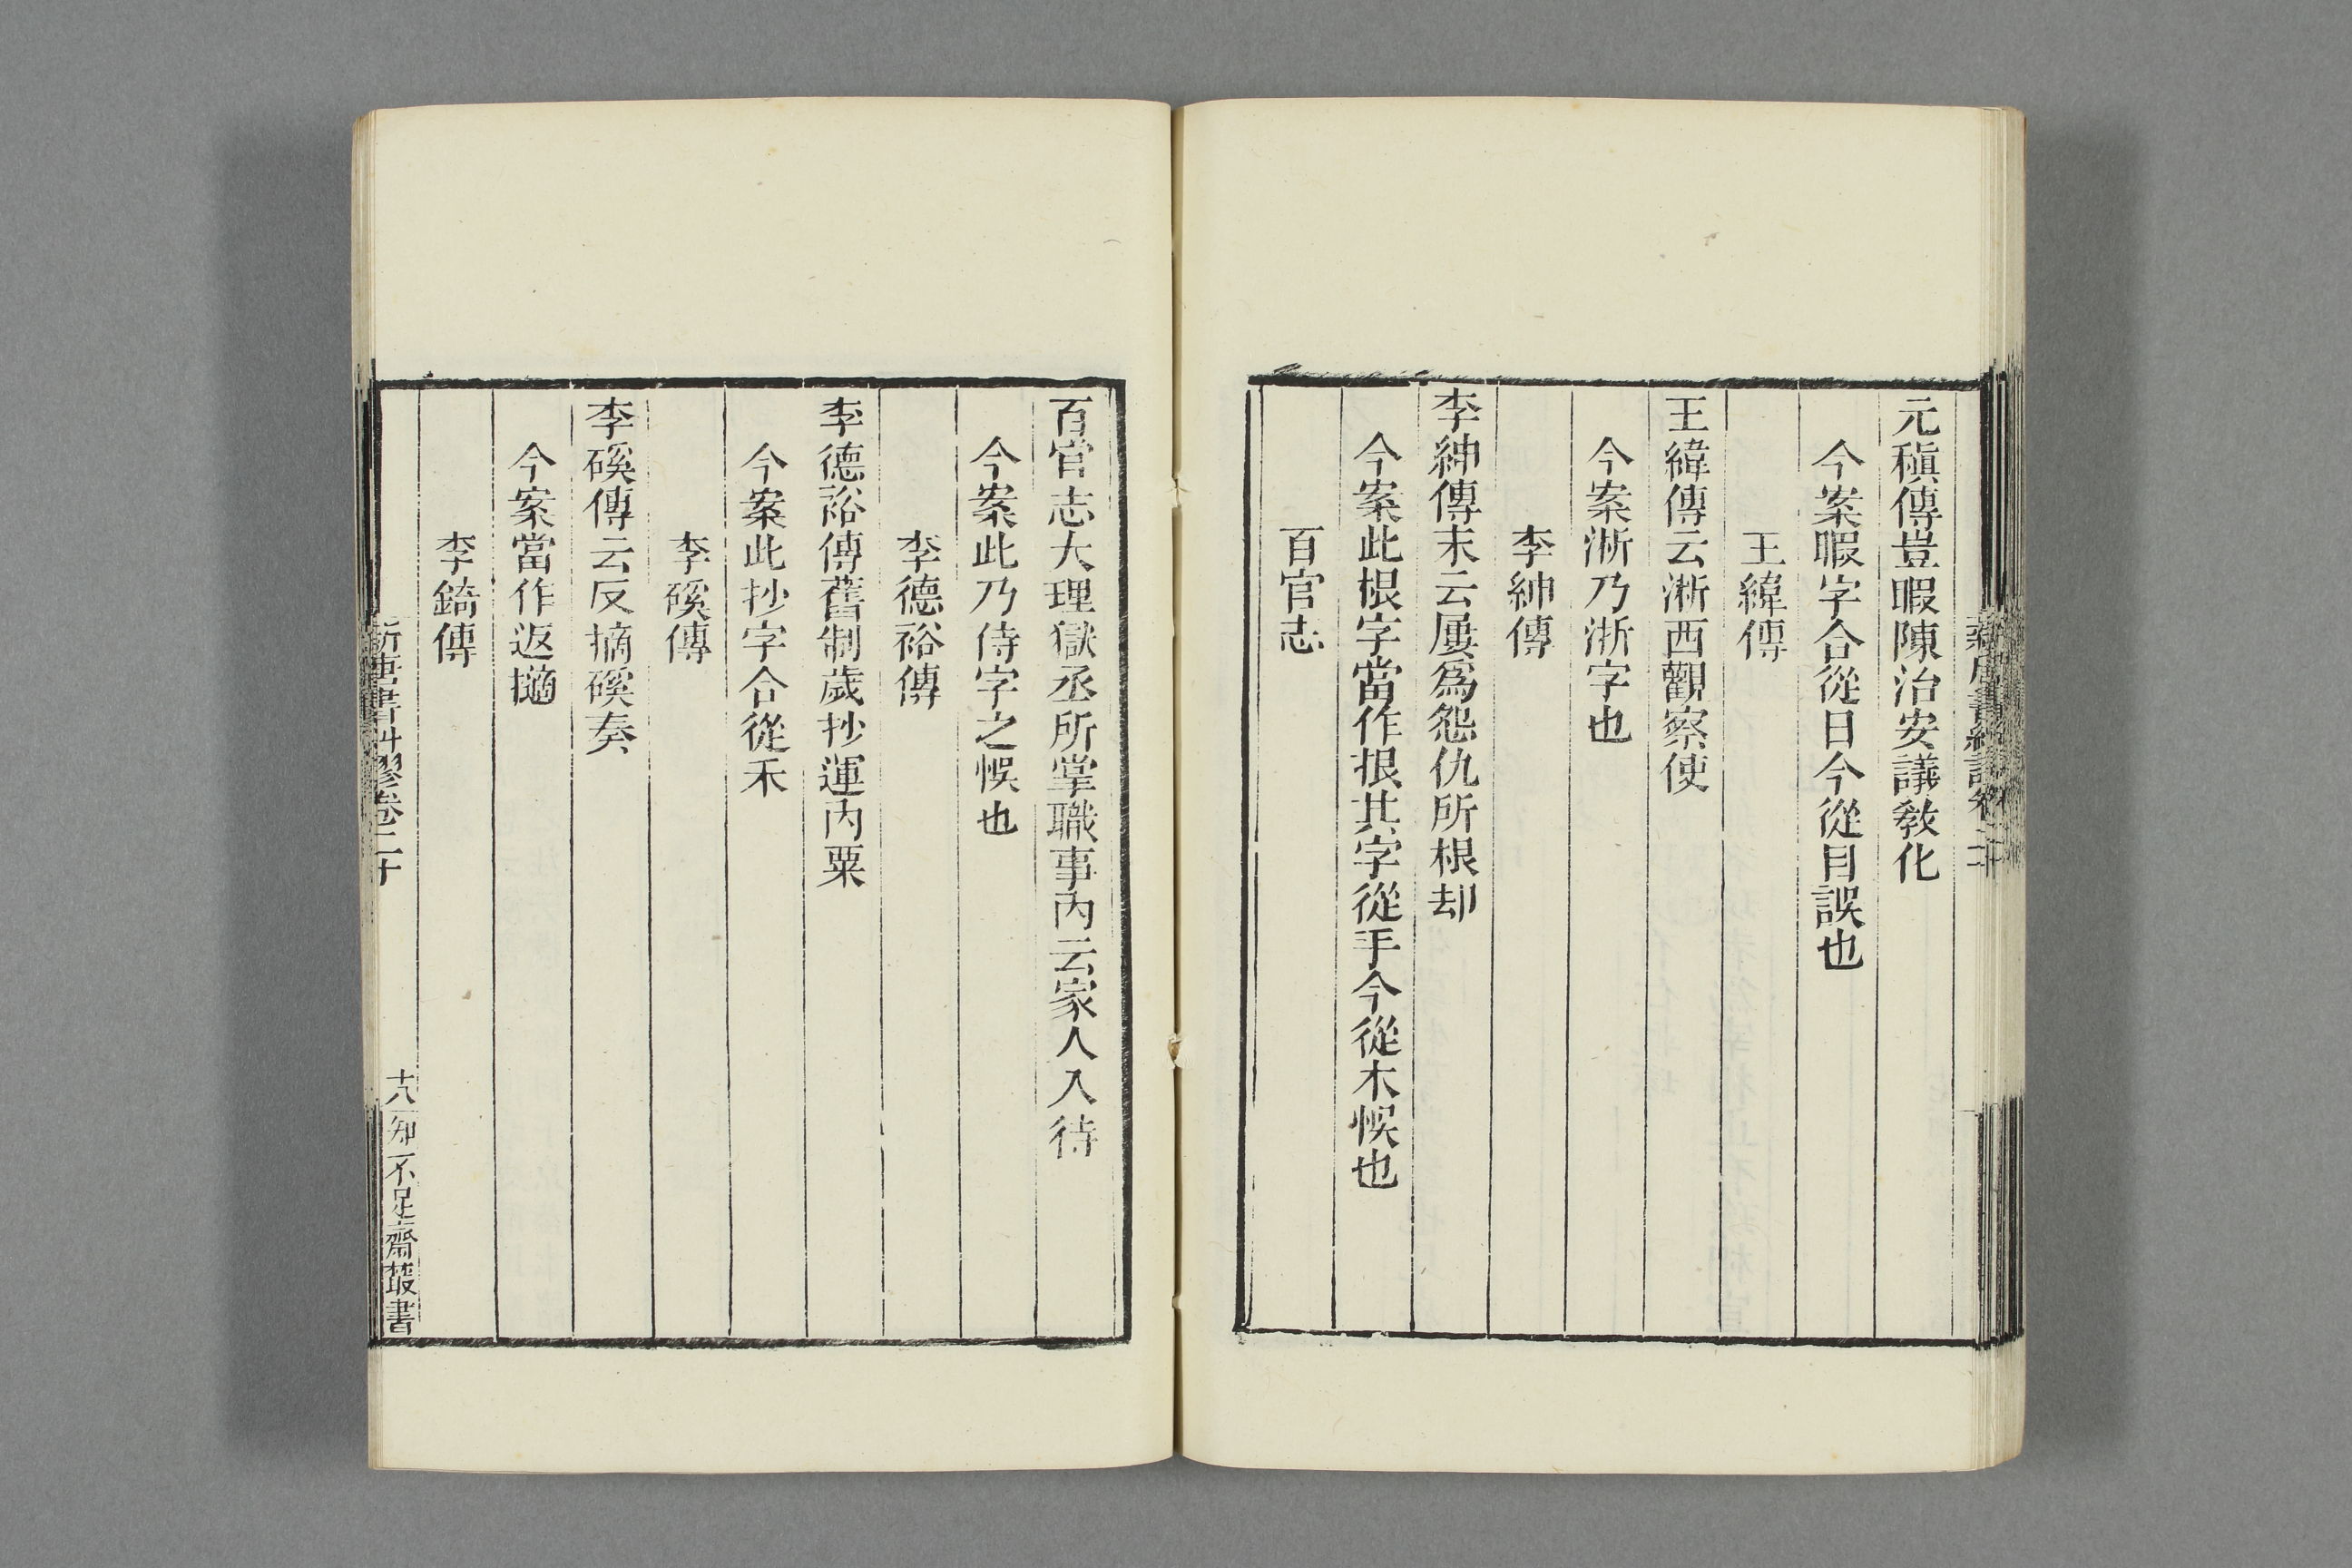 元稹傳豈暇陳治安議敎化
今案暇字合從日今從目誤也
王緯傳
王緯傳云淅西觀察使
今案淅乃浙字也
李紳傳
李紳傳末云屢爲怨仇所根却
今案此根字當作拫其字從手今從木悞也
百官志
百官志大理獄丞所掌職事內云家人入待
今案此乃侍字之悞也
李德裕傳
李德裕傳舊制歲抄運內粟
今案此抄字合從禾
李磎傳
李磎傳云反摘磎奏
今案當作返擿
李錡傳
新唐書糾繆卷二十
十八
知不足齋叢書